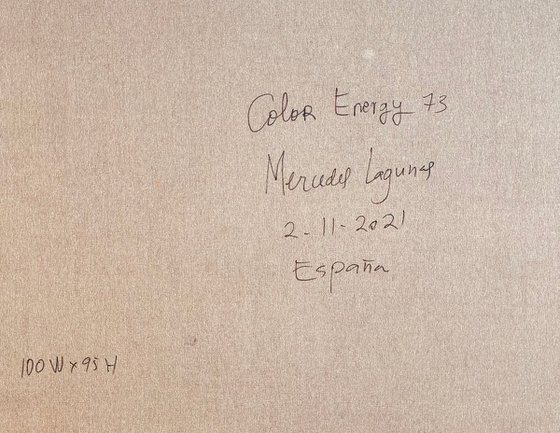 Color Energy 73
Mercedes Lagunas
2-11-2021
España
100W x 95H